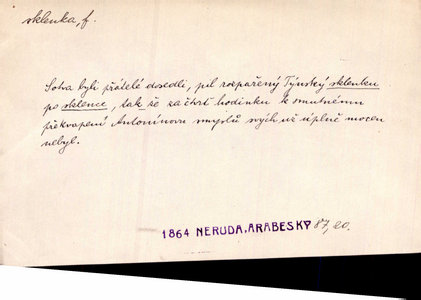 sklenka, f.
Sotva byli přátelé dosedli, pil rozpařený Týnský sklenku
po sklence, tak že za čtvrt hodinku k smutnému
překvapení Antonínovu smyslů svých už úplně mocen
nebyl.
1864 NERUDA, ARABESKY 87, 20.